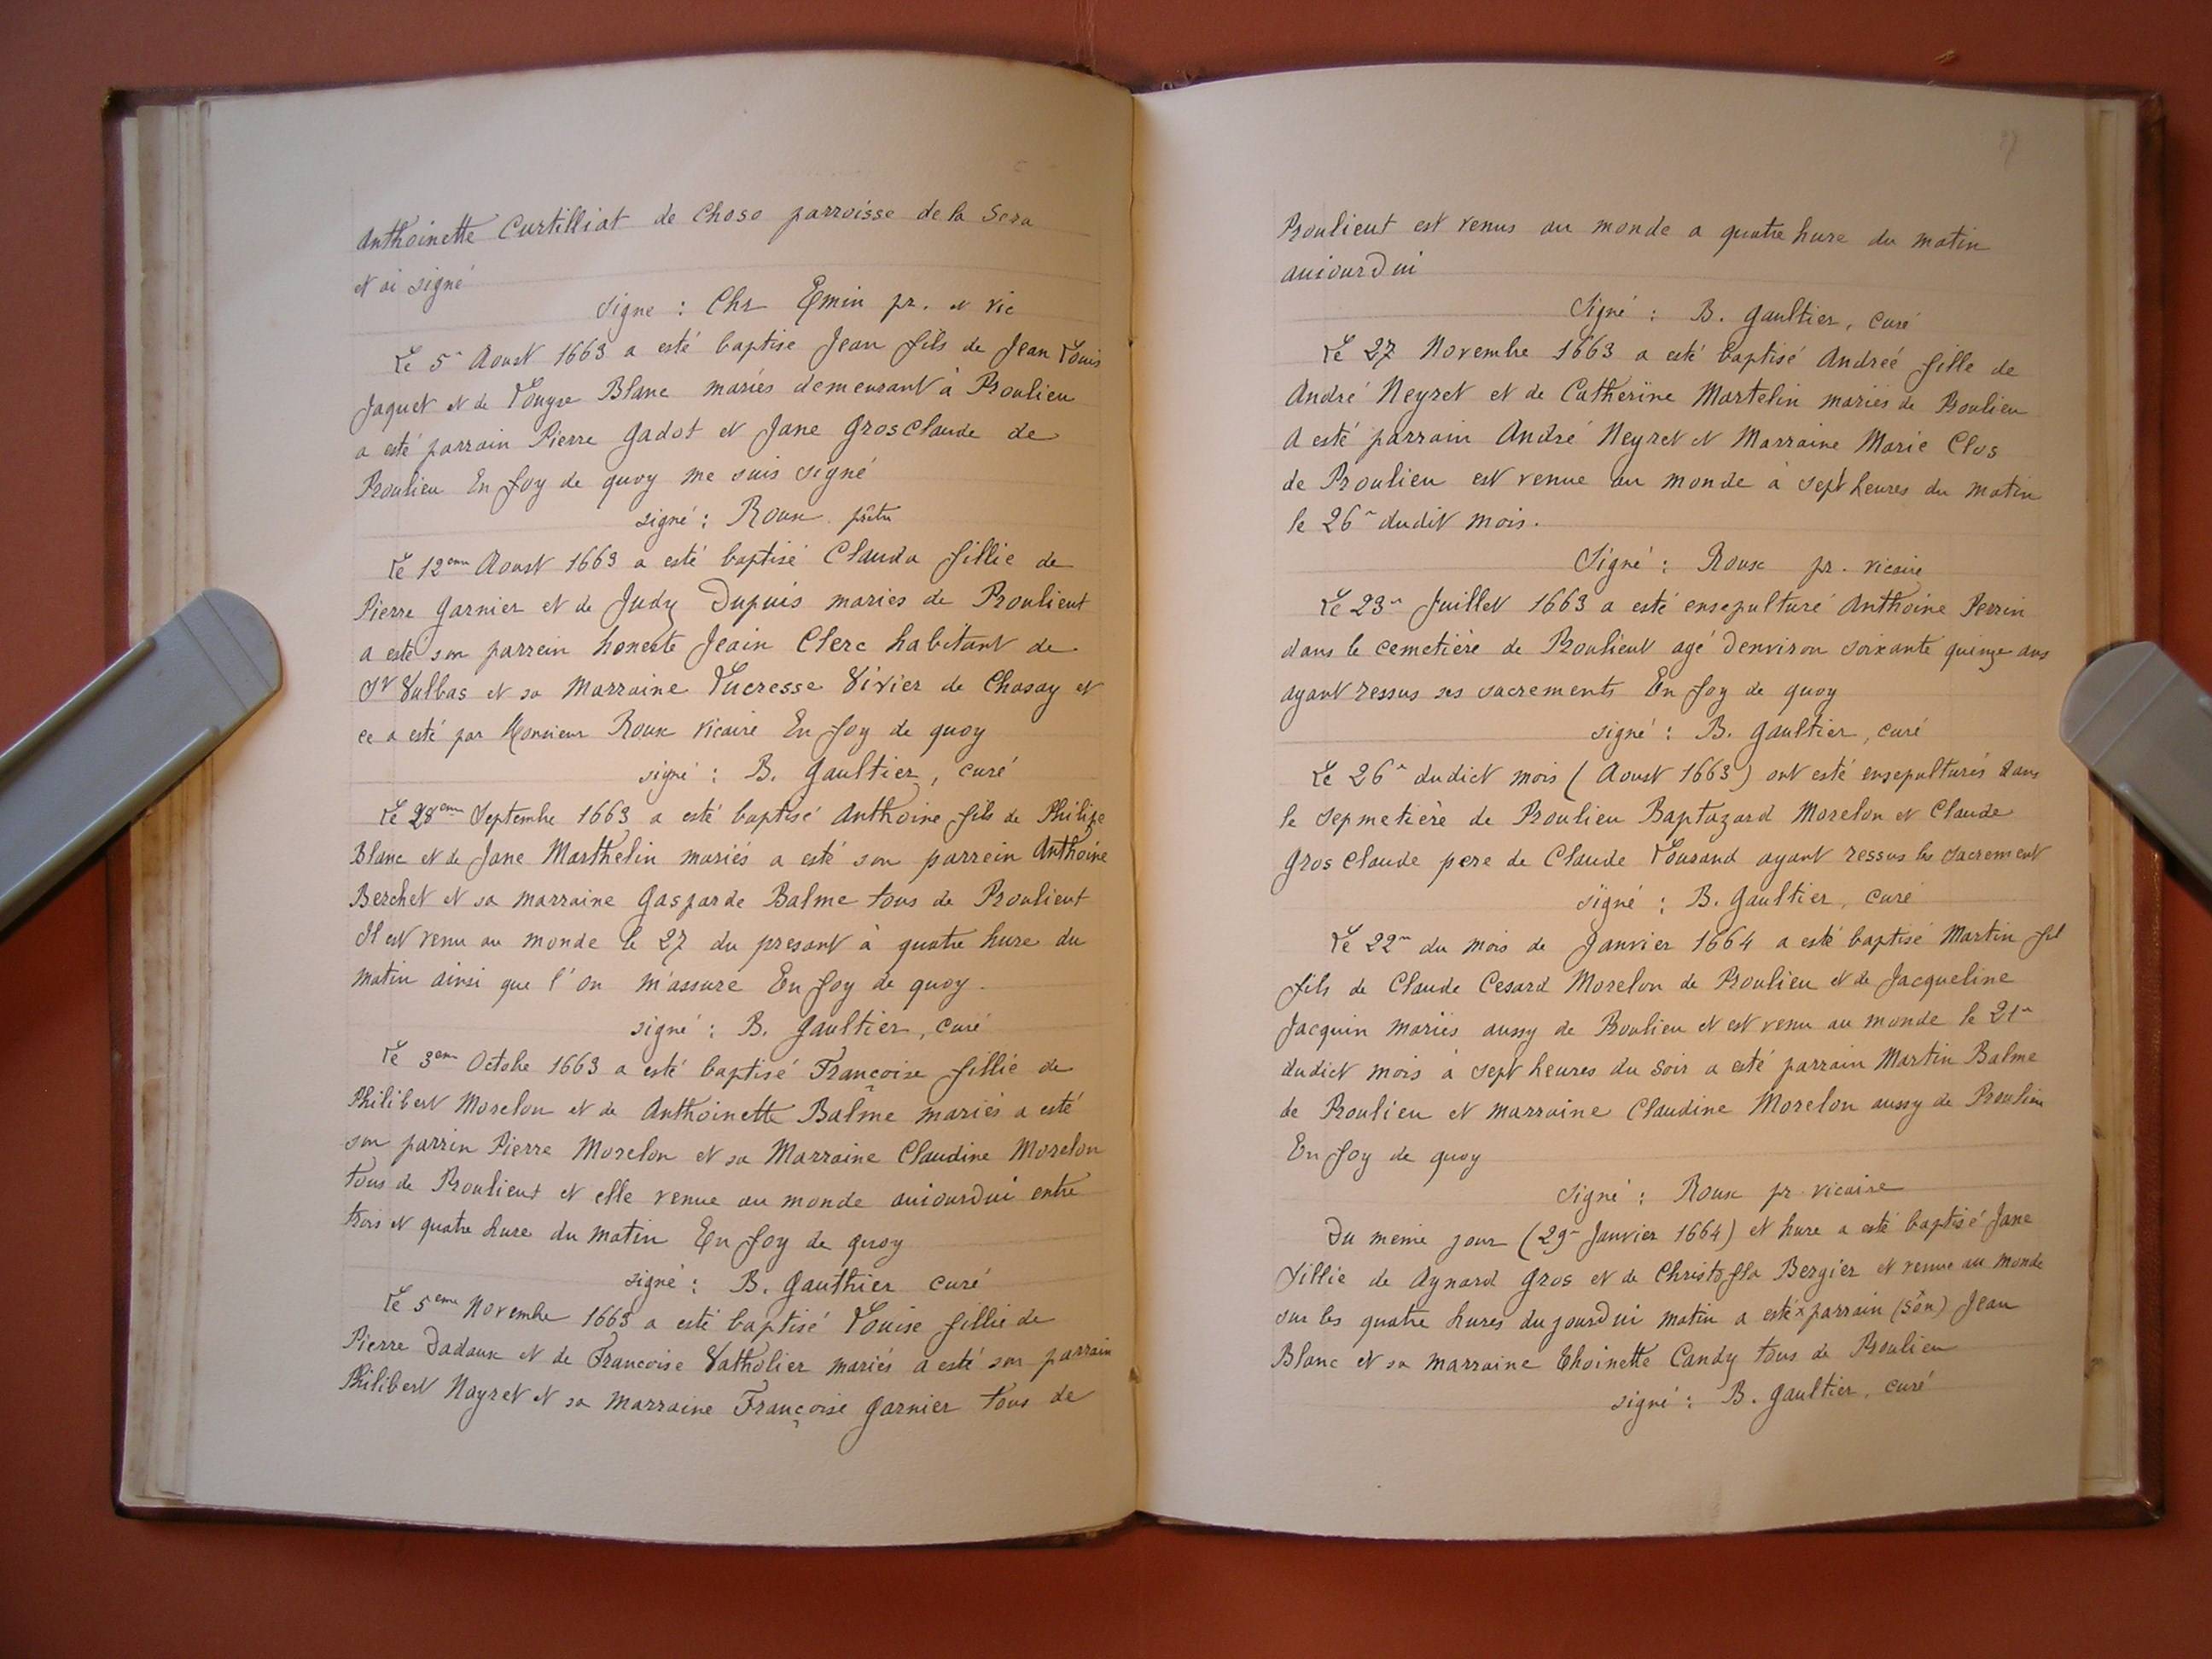 Anthoinette Curtilliat de Choso parroisse de la Serra
et ai signé
Signe : Chr Emin pr. et vic
Le 5e Aoust 1663 a esté baptise Jean fils de Jean Louis
Jaquet et de Louyse Blanc mariés demeurant à Proulieu
a esté parrain Pierre Gadot et Jane Grosclaude de
Proulieu En foy de quoy me suis signé
signé : Roux prêtre
Le 12eme Aoust 1663 a esté baptisé Clauda fillie de
Pierre Garnier et de Judy Dupuis maries de Proulieut
a esté son parrein honeste Jeain Clerc habitant de
St Vulbas et sa Marraine Lucresse Vivier de Chasay et
ce a esté par Monsieur Roux vicaire En foy de quoy
signé : B. Gaultier, curé
Le 28eme Septembre 1663 a esté baptisé Anthoine fils de Philipe
Blanc et de Jane Marthelin mariés a esté son parrein Anthoine
Berchet et sa marraine Gasparde Balme tous de Proulieut
Il est venu au monde le 27 du presant à quatre hure du
matin ainsi que l'on m'assure En foy de quoy.
signé : B. Gaultier, curé
Le 3eme Octobre 1663 a esté baptisé Françoise fillie de
Philibert Morelon et de Anthoinette Balme mariés a esté
son parrin Pierre Morelon et sa Marraine Claudine Morelon
tous de Proulieut et elle venue au monde auiourdui entre
trois et quatre hure du matin En foy de quoy
signé : B. Gauthier curé
Le 5eme Novembre 1663 a esté baptisé Louise fillie de
Pierre Dadaux et de Francoise Vatholier mariés a esté son parrain
Philibert Nayret et sa marraine Françoise Garnier tous de
Proulieut est venus au monde a quatre hure du matin
auiourdui
Signé : B. Gaultier, curé
Le 27 Novembre 1663 a esté baptisé Andreé fille de
André Neyret et de Catherine Martelin mariés de Proulieu
A esté parrain André Neyret et Marraine Marie Clos
de Proulieu est venue au monde à sept heures du matin
le 26e dudit mois.
Signé : Roux pr. vicaire
Le 23e Juillet 1663 a esté ensepulturé Anthoine Perrin
dans le cemetière de Proulieut agé denviron soixante quinze ans
ayant ressus ses sacrements En foy de quoy
signé : B. Gaultier, curé
Le 26e dudict mois (Aoust 1663) ont esté ensepulturés dans
le sepmetière de Proulieu Baptazard Morelon et Claude
Gros Claude pere de Claude Lousand ayant ressus les sacrement
signé : B. Gaultier, curé
Le 22e du mois de Janvier 1664 a esté baptisé Martin fil
fils de Claude Cesard Morelon de Proulieu et de Jacqueline
Jacquin mariés aussy de Proulieu et est venu au monde le 21e
dudict mois à sept heures du soir a esté parrain Martin Balme
de Proulieu et marraine Claudine Morelon aussy de Proulieu
En foy de quoy
Signé : Roux pr. vicaire
Du meme jour (29e Janvier 1664) et hure a esté baptisé Jane
fillie de Aynard Gros et de Christofla Bergier et venue au monde
sur les quatre hures du jourdui matin a esté x parrain (son) Jean
Blanc et sa marraine Thoinette Candy tous de Proulieu
signé : B. Gaultier, curé